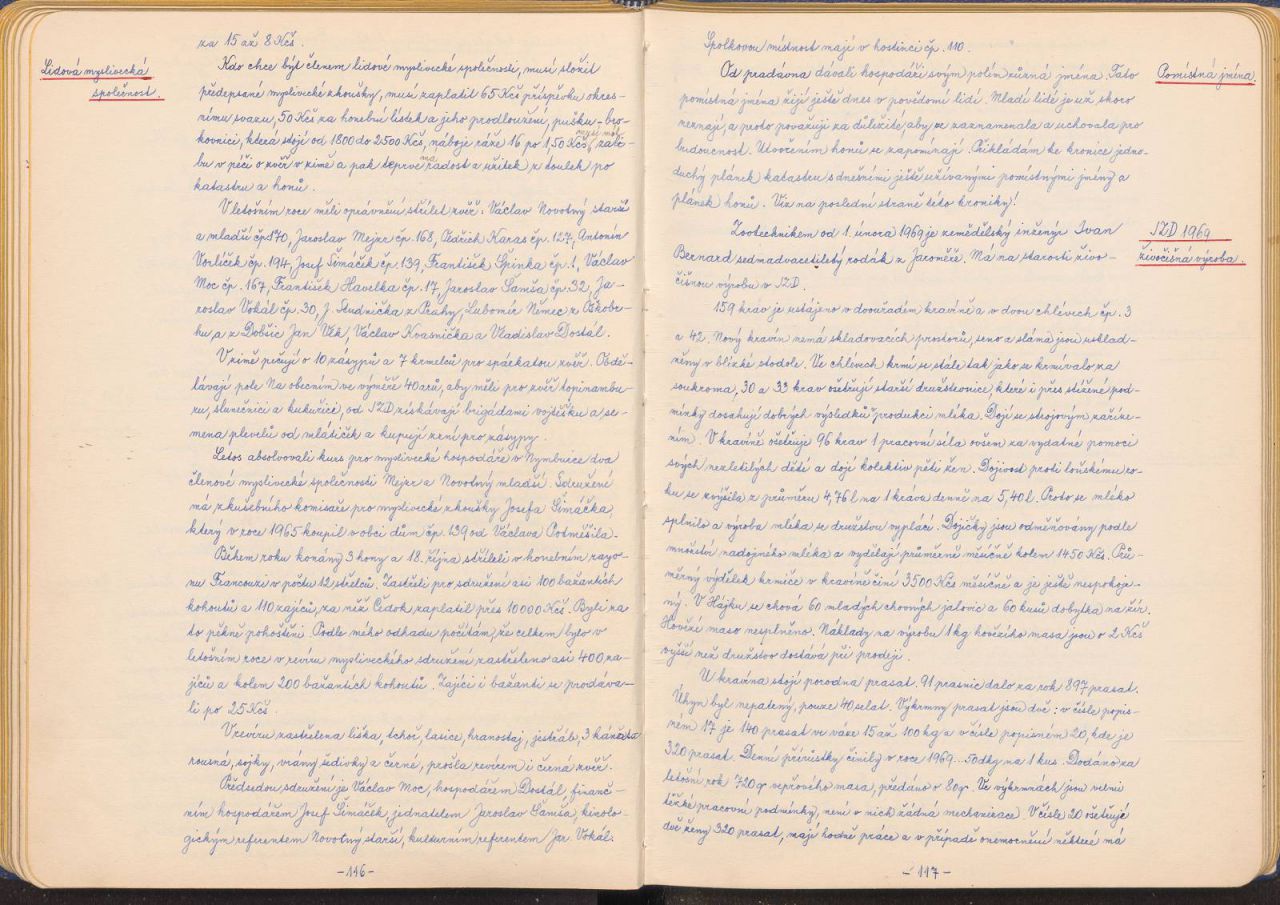 za 15 až 8 Kčs.
Lidová myslivecká
společnost.
Kdo chce být členem lidové myslivecké společnosti, musí složit
předepsané myslivecké zkoušky, musí zaplatit 65 Kčs příspěvku okres-
nímu svazu, 50 Kčs za honební lístek a jeho prodloužení, pušku - bro-
kovnici, která stojí od 1800 do 2500 Kčs, náboje ráže 16 po 1,50 Kčs, musí mít záli-
bu v péči o zvěř v zimě a pak teprve má radost a užitek z toulek po
katastru a honů.
V letošním roce měli oprávnění střílet zvěř: Václav Novotný starší
a mladší čp. 170, Jaroslav Mejzr čp. 168, Oldřich Karas čp. 127, Antonín
Vorlíček čp. 194, Josef Šimáček čp. 139, František Špinka čp. 1, Václav
Moc čp. 167, František Havelka čp. 17, Jaroslav Samša čp. 32, Ja-
roslav Vokál čp. 30, J. Studnička z Prahy, Lubomír Němec z Oskobr-
hu, a z Dobšic Jan Vlk, Václav Kvasnička a Vladislav Dostál.
V zimě pečují o 10 zásypů a 7 krmelců pro spárkatou zvěř. Obdě-
lávají pole Na obecním ve výměře 40 arů, aby měli pro zvěř topinambu-
ru, slunečnici a kukuřici, od JZD získávají brigádami vojtěšku a se-
mena plevelů od mlátiček a kupují zrní pro zásypy.
Letos absolvovali kurs pro myslivecké hospodáře v Nymburce dva
členové myslivecké společnosti Mejzr a Novotný mladší. Sdružení
má zkušebního komisaře pro myslivecké zkoušky Josefa Šimáčka,
který v roce 1965 koupil v obci dům čp. 139 od Václava Podměšila.
Během roku konány 3 hony a 18. října stříleli v honebním rayo-
nu Francouzi v počtu 12 střelců. Zastřelili pro sdružení asi 100 bažantích
kohoutů a 110 zajíců, za něž Čedok zaplatil přes 10 000 Kčs. Byli za
to pěkně pohoštěni. Podle mého odhadu počítám, že celkem bylo v
letošním roce v revíru mysliveckého sdružení zastřeleno asi 400 za-
jíců a kolem 200 bažantích kohoutů. Zajíci i bažanti se prodáva-
li po 25 Kčs.
V revíru zastřelena liška, tchoř, lasice, hranostaj, jestřáb, 3 káňata
rousná, sojky, vrány šedivky a černé, prošla revírem i černá zvěř.
Předsedou sdružení je Václav Moc, hospodářem Dostál, finanč-
ním hospodářem Josef Šimáček, jednatelem Jaroslav Samša, kinolo-
gickým referentem Novotný starší, kulturním referentem Jar. Vokál.
-116-
Spolkovou místnost mají v hostinci čp. 110.
Pomístná jména.
Od pradávna dávali hospodáři svým polím různá jména. Tato
pomístná jména žijí ještě dnes v povědomí lidí. Mladí lidé je už skoro
neznají, a proto považuji za důležité, aby se zaznamenala a uchovala pro
budoucnost. Utvořením honů se zapomínají. Přikládám ke kronice jedno-
duchý plánek katastru s dnešními ještě užívanými pomístnými jmény a
plánek honů. Viz na poslední straně této kroniky!
JZD 1969
živočišná výroba.
Zootechnikem od 1. února 1969 je zemědělský inženýr Ivan
Bernard sedmadvacetiletý rodák z Jaroměře. Má na starosti živo-
čišnou výrobu v JZD.
159 krav je ustájeno v dvouřadém kravíně a v dvou chlévech čp. 3
a 42. Nový kravín nemá skladovacích prostorů, seno a sláma jsou usklad-
něny v blízké stodole. Ve chlévech krmí se stále tak jako se krmívalo za
soukroma, 30 a 33 krav ošetřují starší družstevnice, které i přes stížené pod-
mínky dosahují dobrých výsledků v produkci mléka. Dojí se strojovým zaříze-
ním. V kravíně ošetřuje 96 krav 1 pracovní síla ovšem za vydatné pomoci
svých nezletilých dětí a dojí kolektiv pěti žen. Dojivost proti loňskému ro-
ku se zvýšila z průměru 4,76 l na 1 krávu denně na 5,40 l. Proto se mléko
splnilo a výroba mléka se družstvu vyplácí. Dojičky jsou odměňovány podle
množství nadojného mléka a vydělají průměrně měsíčně kolem 1450 Kčs. Prů-
měrný výdělek krmiče v kravíně činí 3500 Kčs měsíčně a je ještě nespokoje-
ný. V Hájku se chová 60 mladých chovných jalovic a 60 kusů dobytka na žír.
Hovězí maso nesplněno. Náklady na výrobu 1 kg hovězího masa jsou o 2 Kčs
vyšší než družstvo dostává při prodeji.
U kravína stojí porodna prasat. 91 prasnic dalo za rok 897 prasat.
Úhyn byl nepatrný, pouze 40 selat. Výkrmny prasat jsou dvě: v čísle popis-
ném 17 je 140 prasat ve váze 15 až 100 kg a v čísle popisném 20, kde je
320 prasat. Denní přírůstky činily v roce 1969 ... 50 dkg na 1 kus. Dodáno za
letošní rok 720 q vepřového masa, předáno o 80 q. Ve výkrmnách jsou velmi
těžké pracovní podmínky, není v nich žádná mechanizace. V čísle 20 ošetřují
dvě ženy 320 prasat, mají hodně práce a v případě onemocnění některé má
- 117 -